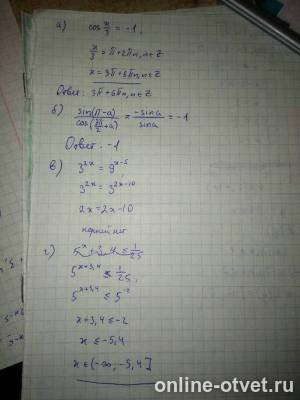 а) cos x/3 = -1,
x/3 = π + 2πn, n ∈ Z
x = 3π + 6πn, n ∈ Z
Ответ: 3π + 6πn, n ∈ Z
б) sin(π-a)/cos(3π/2+a) = -sina/sina = -1
Ответ: -1
в) 3^2x = 9^x-5
3^2x = 3^2x-10
2x = 2x-10
корней нет
г) 5^x+3,4 ≤ 1/25
5^x+3,4 ≤ 1/25,
5^x+3,4 ≤ 5^-2
x+3,4 ≤ -2
x ≤ -5,4
x ∈ (-∞, -5,4]
online-otvet.ru